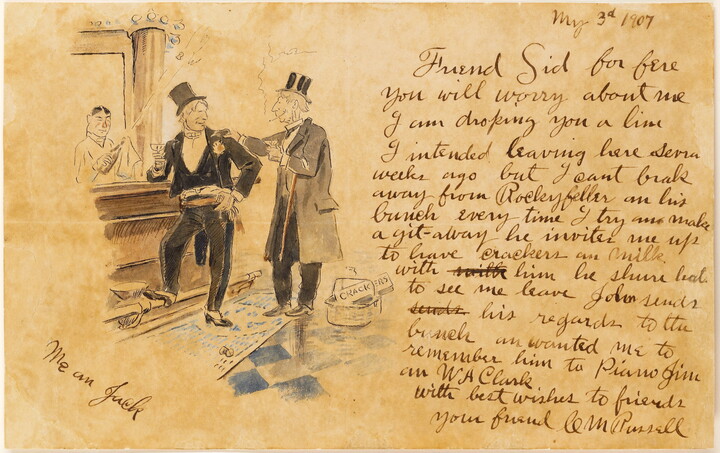 My 3d 1907
Friend Sid for fere
you will worry about me
I am droping you a line
I intended leaving here sevra
weeks ago but I cant brak
away from Rockyfeller an his
bunch every time I try an make
a git-away he invites me up
to have crackers an milk
with him he shure hats
to see me leave John sends
sends his regards to the
bunch an wanted me to
remember him to Piano Jim
an WA Clark
with best wishes to friends
your friend CM Russell
CRACKERS
Me an Jack